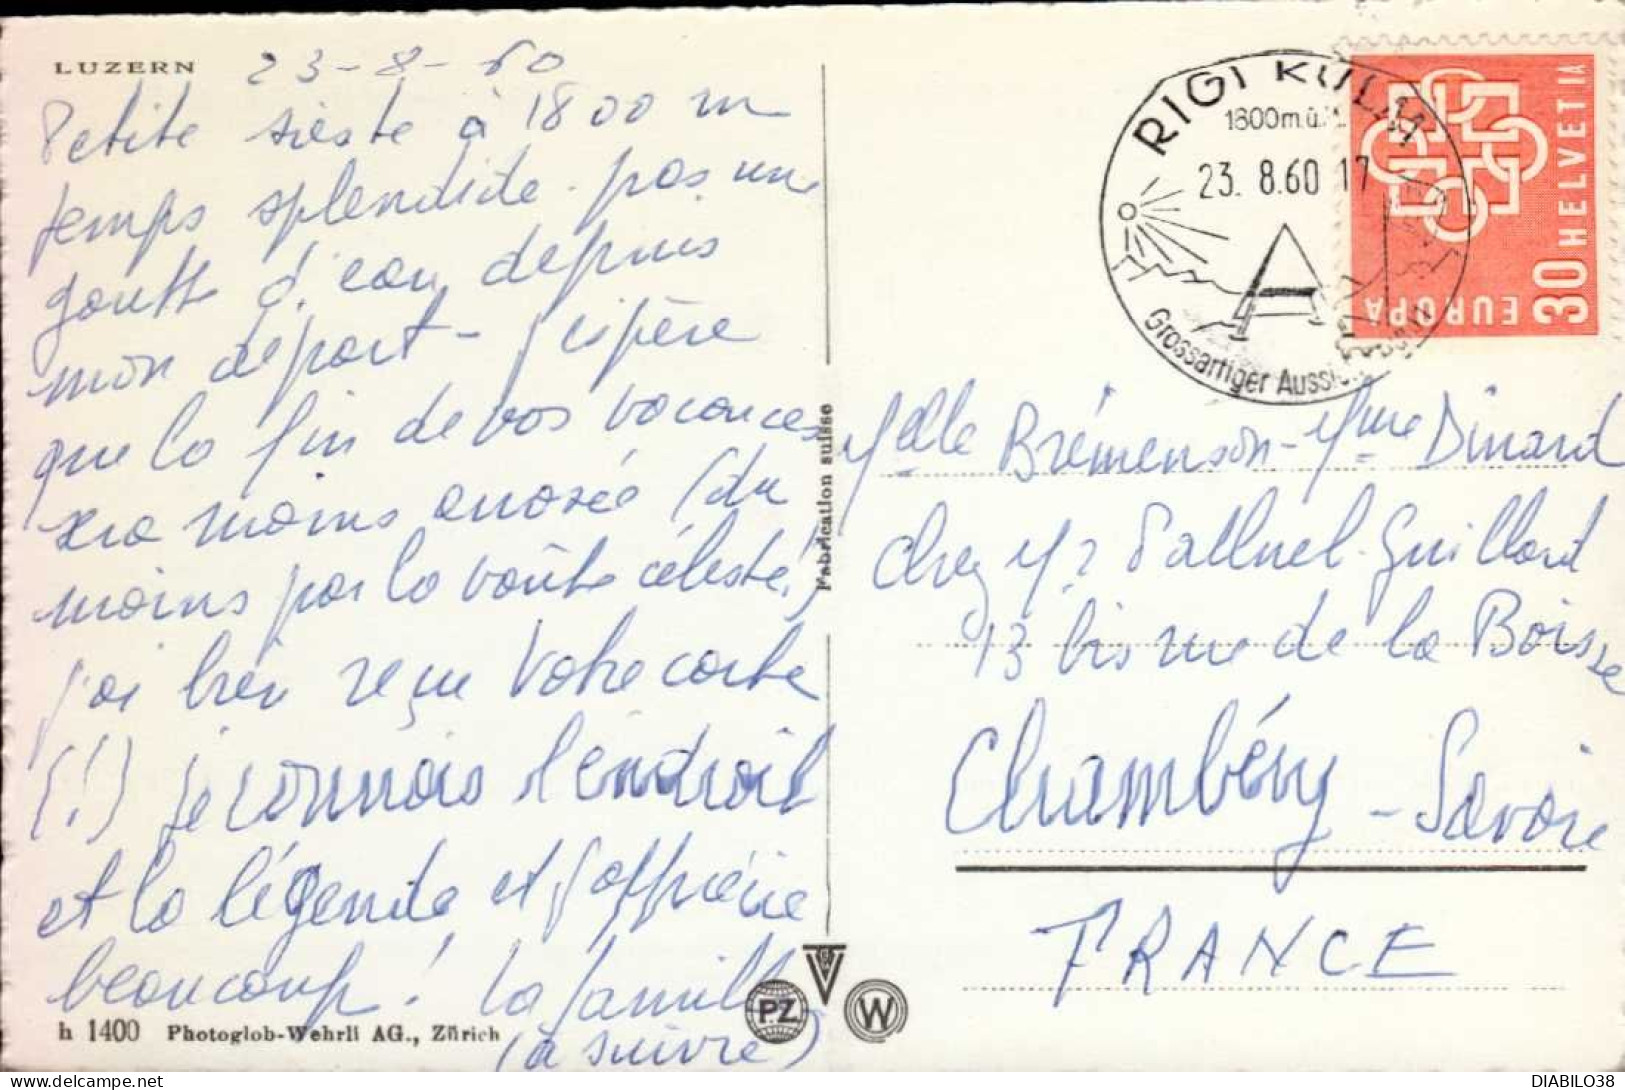 LUZERN
23-8-60
Petite sieste à 1800 m
temps splendide. pas une
goutte d'eau depuis
mon départ - j'espère
que la fin de vos vacances
sera moins arrosée (du
moins par la voûte céleste!)
j'ai bien reçu votre carte
(!) je connais l'endroit
et la légende et j'apprécie
beaucoup! la famille
(à suivre)
h 1400 Photoglob-Wehrli AG., Zürich
Fabrication suisse
PZ
W
RIGI KULM
1800m.ü.M.
23. 8.60 17
Grossartiger
HELVETIA
30
EUROPA
Melle Brémenson - Mme Dinard
chez Mr Palluel-Guillard
13 bis rue de la Boisse
Chambéry - Savoie
FRANCE
DIABILO38